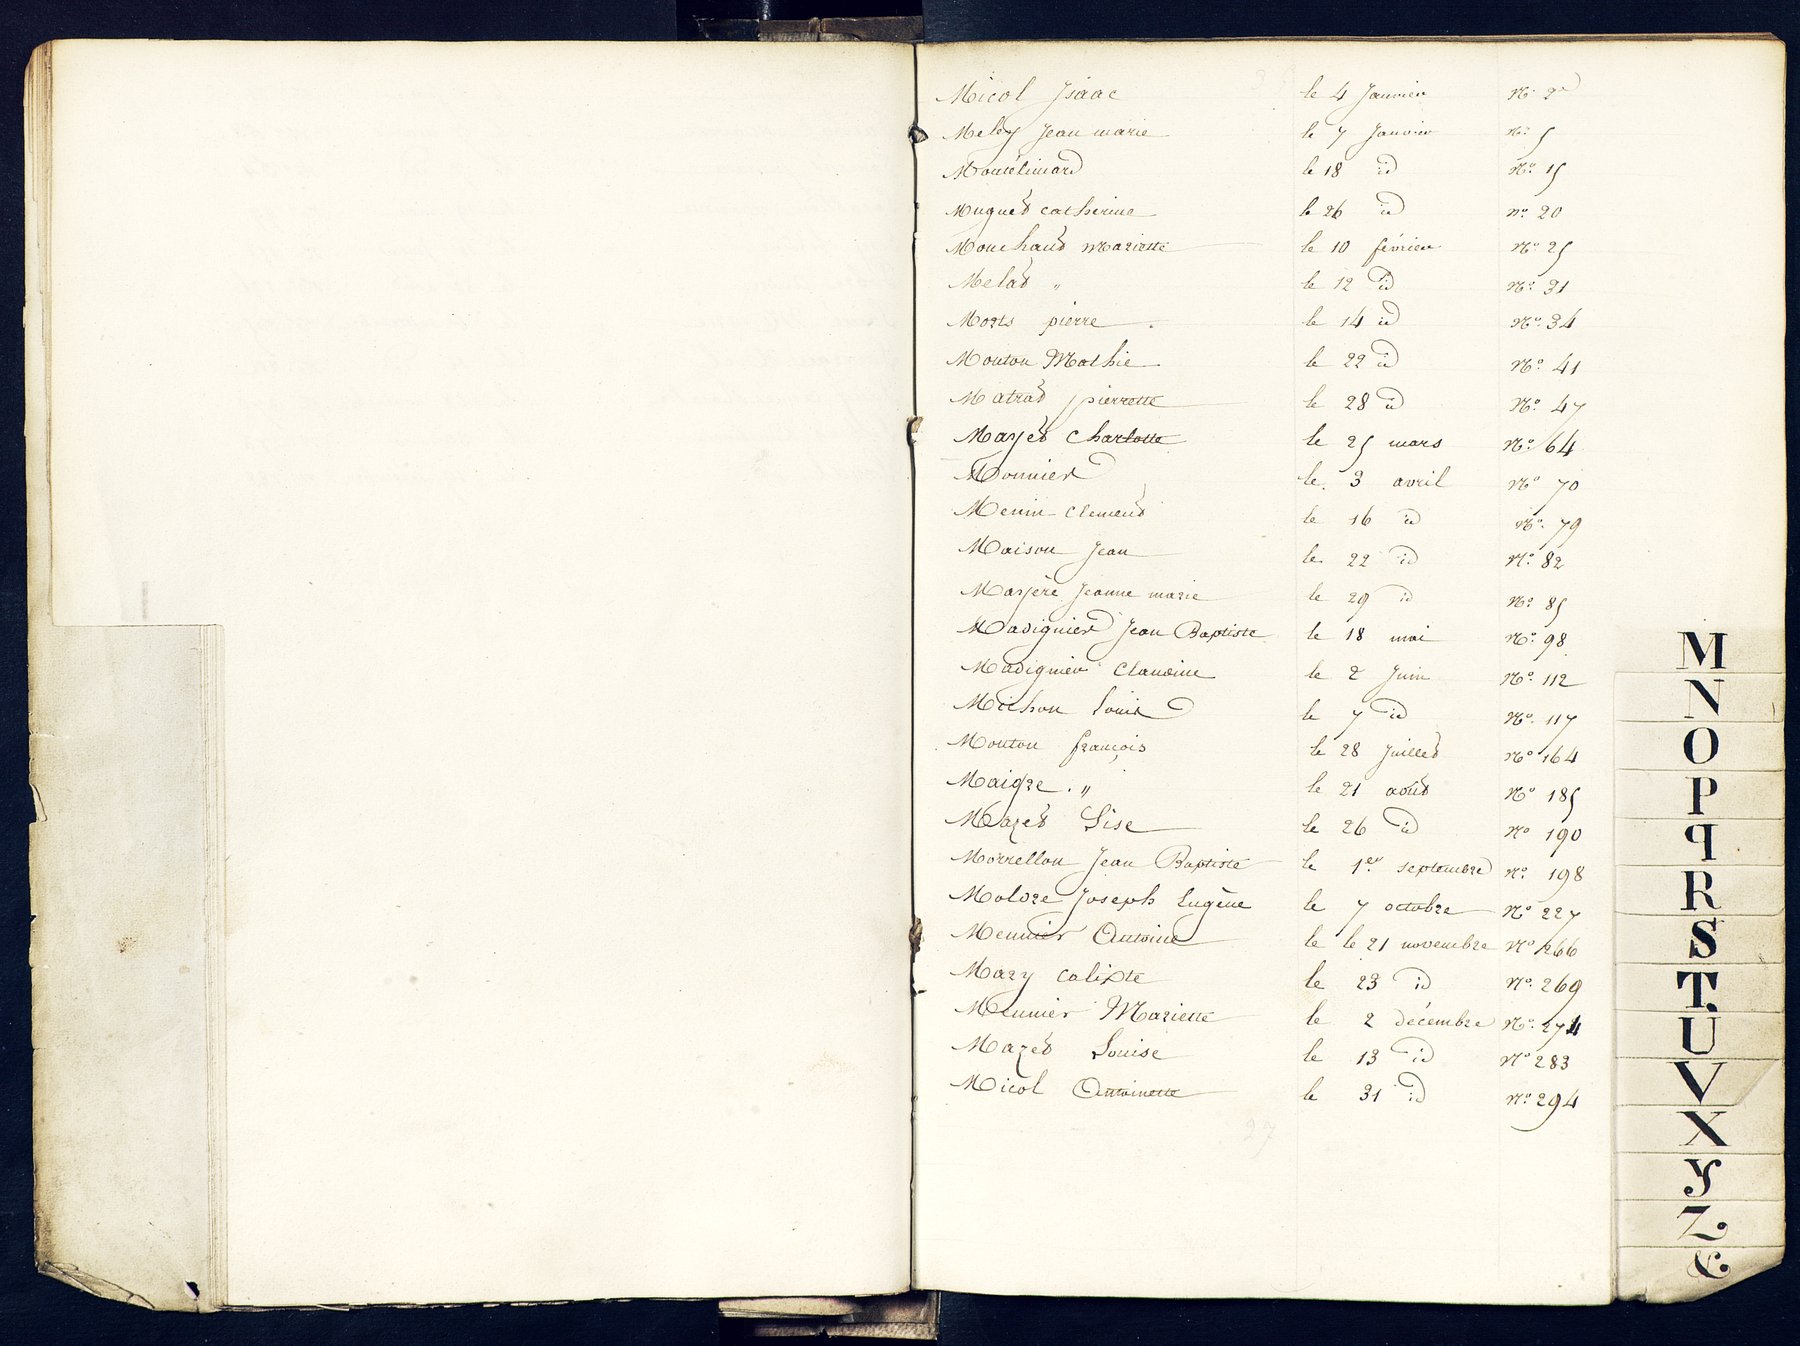 Micol Isaac le 4 Janvier N° 2
Mely Jean marie le 7 Janvier N° 5
Moulélimard le 18 id N° 15
Muguet catherine le 26 id n° 20
Mouchaud Mariette le 10 février N° 25
Melat " le 12 id N° 31
Morts pierre le 14 id N° 34
Mouton Mathie le 22 id N° 41
Matrat pierrette le 28 id N° 47
Mayet Charlotte le 25 mars N° 64
Monnier le 3 avril N° 70
Menin Clement le 16 id N° 79
Maison Jean le 22 id N° 82
Marjère Jeanne marie le 29 id N° 85
Madignier Jean Baptiste le 18 mai N° 98
Madignier Claudine le 2 Juin N° 112
Michon Louis le 7 id N° 117
Mouton françois le 28 Juillet N° 164
Maigre " le 21 août N° 185
Mazet Lise le 26 id N° 190
Morrellon Jean Baptiste le 1er septembre N° 198
Moldre Joseph Eugène le 7 octobre N° 227
Meunier Antoine le le 21 novembre N° 266
Mary calixte le 23 id N° 269
Meunier Mariette le 2 décembre N° 274
Mazet Louise le 13 id N° 283
Micol Antoinette le 31 id N° 294
27
M
N
O
P
q
R
S
T.
U
V
X
Y
Z
&